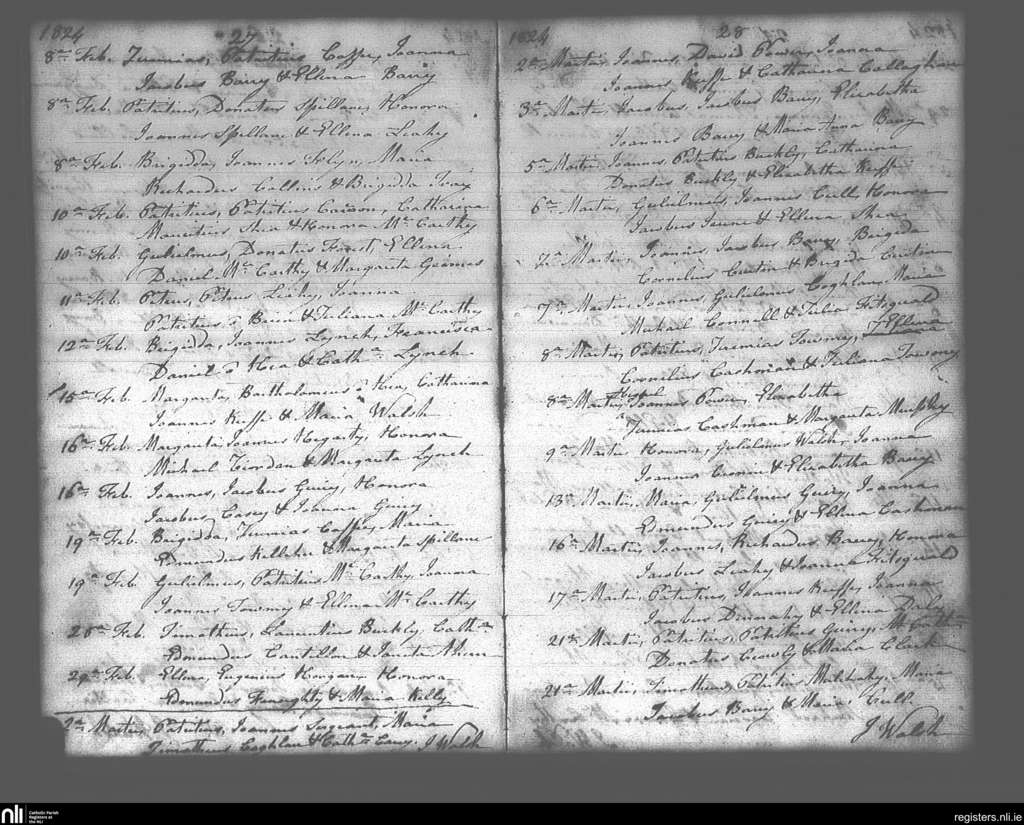 1824 27
8a Feb. Jeremias, Patritius Coffee, Joanna
Jacobus Barry & Ellena Barry
8a Feb. Patritius, Donatus Spillane, Honora
Joannes Spillane & Ellena Leahy
8a Feb. Brigidda, Joannes Maria
Richardus Collins & Brigidda
10a Feb. Patritius, Patritius Catharina
Mauritius Shea & Honora Mc Carthy
10a Feb. Gulielmus, Donatus Ellena
Daniel Mc Carthy & Margarita
11a Feb. Petrus, Petrus Leahy, Joanna
Patritius & Juliana Mc Carthy
12a Feb. Brigidda, Joannes Lynch, Francisca
Daniel o Hea & Cath. Lynch
15a Feb. Margarita, Bartholomeus o Hea, Catharina
Joannes Keeffe & Maria Walsh
16a Feb. Margarita, Joannes Hegarty, Honora
Michael & Margarita Lynch
16a Feb. Joannes, Jacobus Guiry, Honora
Jacobus Casey & Joanna Guiry
19a Feb. Brigidda, Jeremias Coffee, Maria
Edmundus Kelleher & Margarita Spillane
19a Feb. Gulielmus, Patritius Mc Carthy, Joanna
Joannes Towmy & Ellena Mc Carthy
Feb. Timotheus, Laurentius Buckly, Cath
Edmundus Cantillon & Ahern
Feb. Ellena, Eugenius Horgan, Honora
Edmundus & Maria Kelly
2a Martii, Patritius, Joannes Sargeant, Maria
Timotheus Coghlan & Cath. J Walsh
1824 28
2a Martii Joannes, David Power, Joanna
Joannes Keeffe & Catharina Callaghan
3a Martii, Jacobus, Jacobus Barry, Elizabetha
Joannes Barry & Maria Anna Barry
5a Martii Joannes, Patritius Buckly, Catharina
Donatus Buckly & Elizabetha Keeffe
6a Martii, Gulielmus, Joannes Cull, Honora
Jacobus & Ellena Shea
7a Martii, Joannes, Jacobus Barry, Brigida
Cornelius Curtin & Brigida Curtin
7a Martii, Joannes, Gulielmus Coghlan, Maria
Michael Connell & Julia Fitzgerald
8a Martii, Patritius, Jeremias Towmy,
Cornelius Cashman & Juliana Towmy
8a Martii, Joannes Power, Elizabetha
Jeremias Cashman & Margarita Murphy
9a Martii Honora, Gulielmus Walsh, Joanna
Joannes Cronin & Elizabetha Barry
13a Martii, Maria, Gulielmus Guiry, Joanna
Edmundus Guiry & Ellena Cashman
16a Martii, Joannes, Richardus Barry, Honora
Jacobus Leahy & Joanna Fitzgerald
17a Martii, Patritius, Joannes Keeffe, Joanna
Jacobus & Ellena Daly
21a Martii, Patritius, Patritius Guiry,
Donatus Crowly & Maria Clark
21a Martii, Timotheus, Patritius Maria
Jacobus Barry & Maria Cull
J Walsh
nli
Catholic Parish
Registers at
the NLI
registers.nli.ie